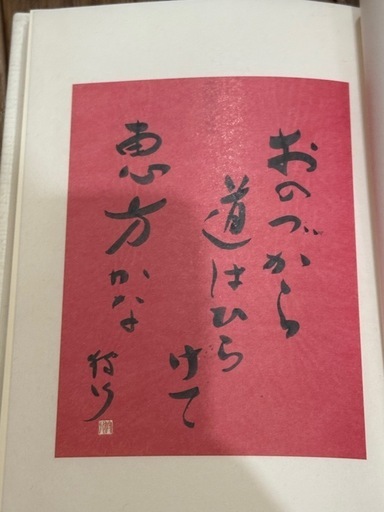 おのづから
道はひら
けて
恵方かな